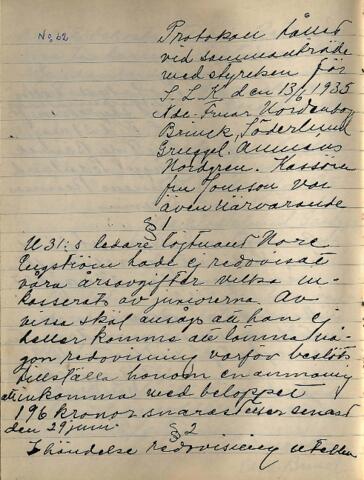 No 62
Protokoll hållet
vid sammanträde
med styrelsen för
S. L. K. den 13/6 1935
Nde. Fruar Nordenborg
Brinck, Söderlund
Gruggel. Ammans
Nordgren. Kassören
fru Jonsson var
även närvarande
§ 1
U 31:s ledare löjtnant Nore
Engström hade ej redovisat
våra årsavgifter vilka in-
kasserats av juniorerna. Av
vissa skäl ansågs att han ej
heller komme att lämna nå-
gon redovisning varför beslöts
tillställa honom en anmaning
att inkomma med beloppet
196 kronor snarast eller senast
den 29 juni.
§ 2
I händelse redovisning utebliver